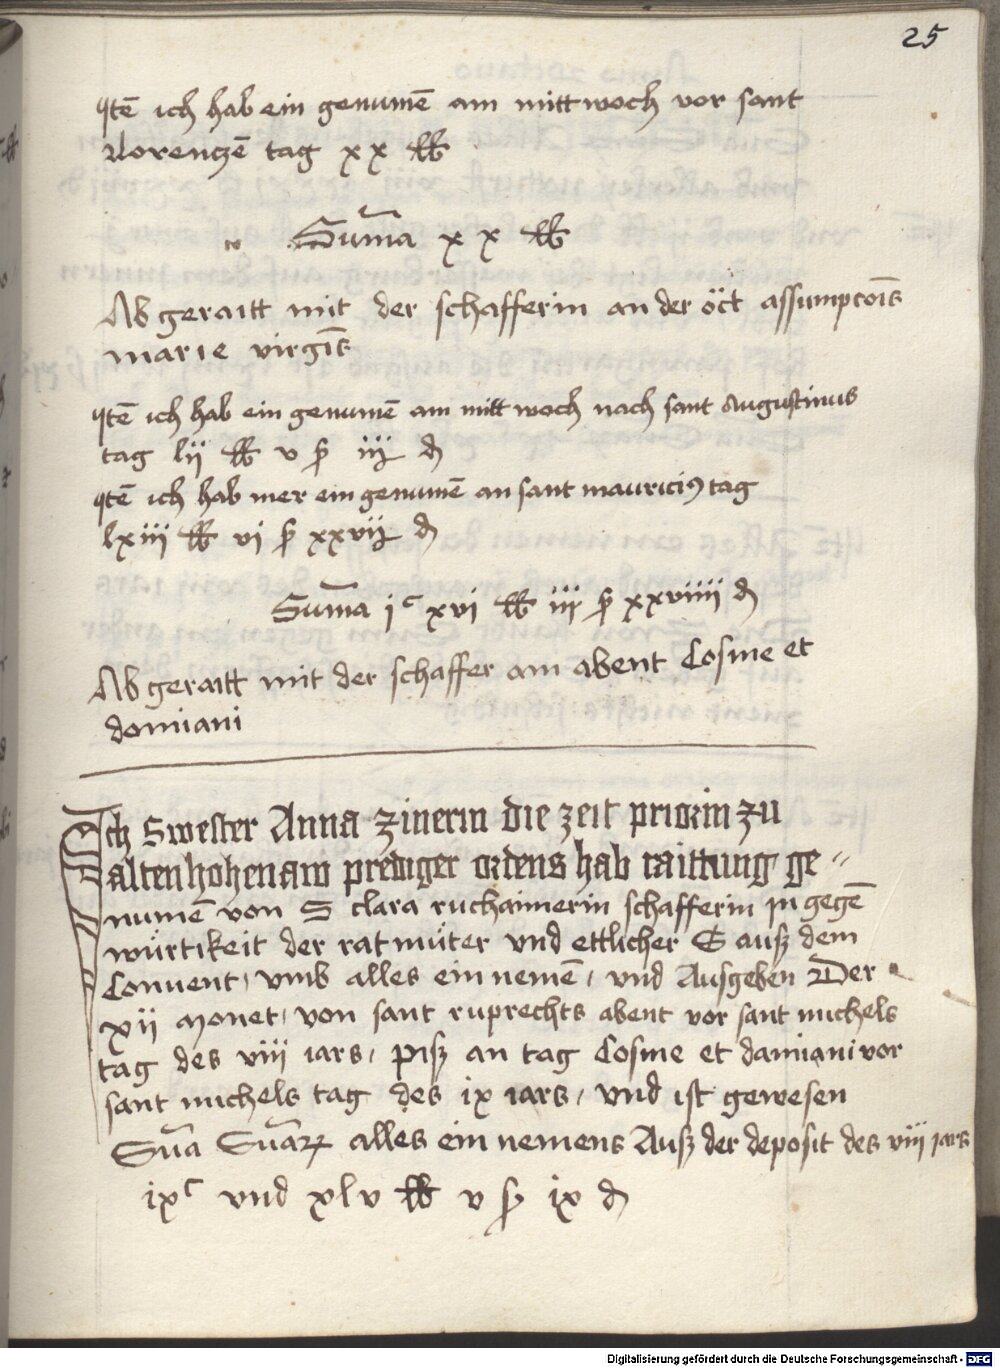 25
Itē ich hab ein genumē am mittwoch vor sant
Lorenczē tag xx lb
Sum̄a xx lb
Ab geraitt mit der schafferin an der öct assumpcōis
marie virgīs
Itē ich hab ein genumē am mittwoch nach sant Augustinus
tag lii lb v ß iij d
Itē ich hab mer ein genumē an sant mauriciꝰ tag
lxiii lb vi ß xxvij d
Sum̄a jc xvi lb iij ß xxviiii d
Ab geraitt mit der schaffer am abent Cosme et
domiani
Ich Swester Anna zinerin die zeit priorin zu
altenhohenaw prediger ordens hab raittung ge〃
numē von S clara ruchaimerin schafferin in gegē
würtikeit der rat müter vnd ettlicher S auß dem
Conuent, vmb alles ein nemē, vnd Ausgeben Der
xii monet, von sant ruprechts abent vor sant michels
tag des viii iars, piß an tag Cosme et damiani vor
sant michels tag des ix iars, vnd ist gewesen
Sūa Sūarꝝ alles ein nemens Auß der deposit des viii iars
ixc vnd xlv lb v ß ix d
Digitalisierung gefördert durch die Deutsche Forschungsgemeinschaft - DFG